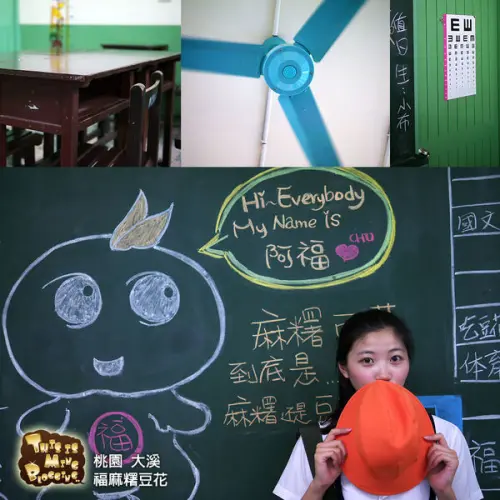 值日生:小布
E
E W
Hi~Everybody
My Name is
阿福 CHU
國文
麻糬豆花
到底是...
麻糬還是豆
體育
福
This is
Mine
Bloggive.
桃園 大溪
福麻糬豆花